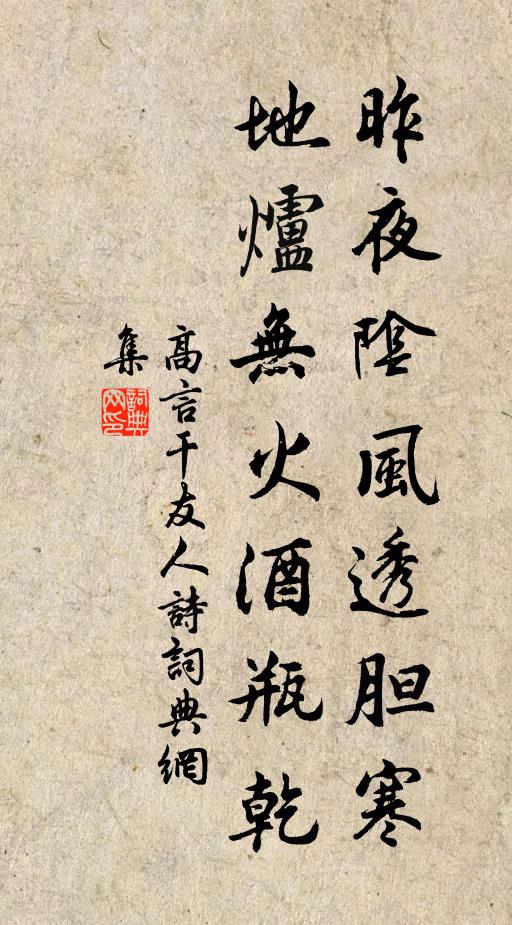 昨夜陰風透胆寒
地爐無火酒瓶乾
高言干友人詩詞典網
集
詞典網印